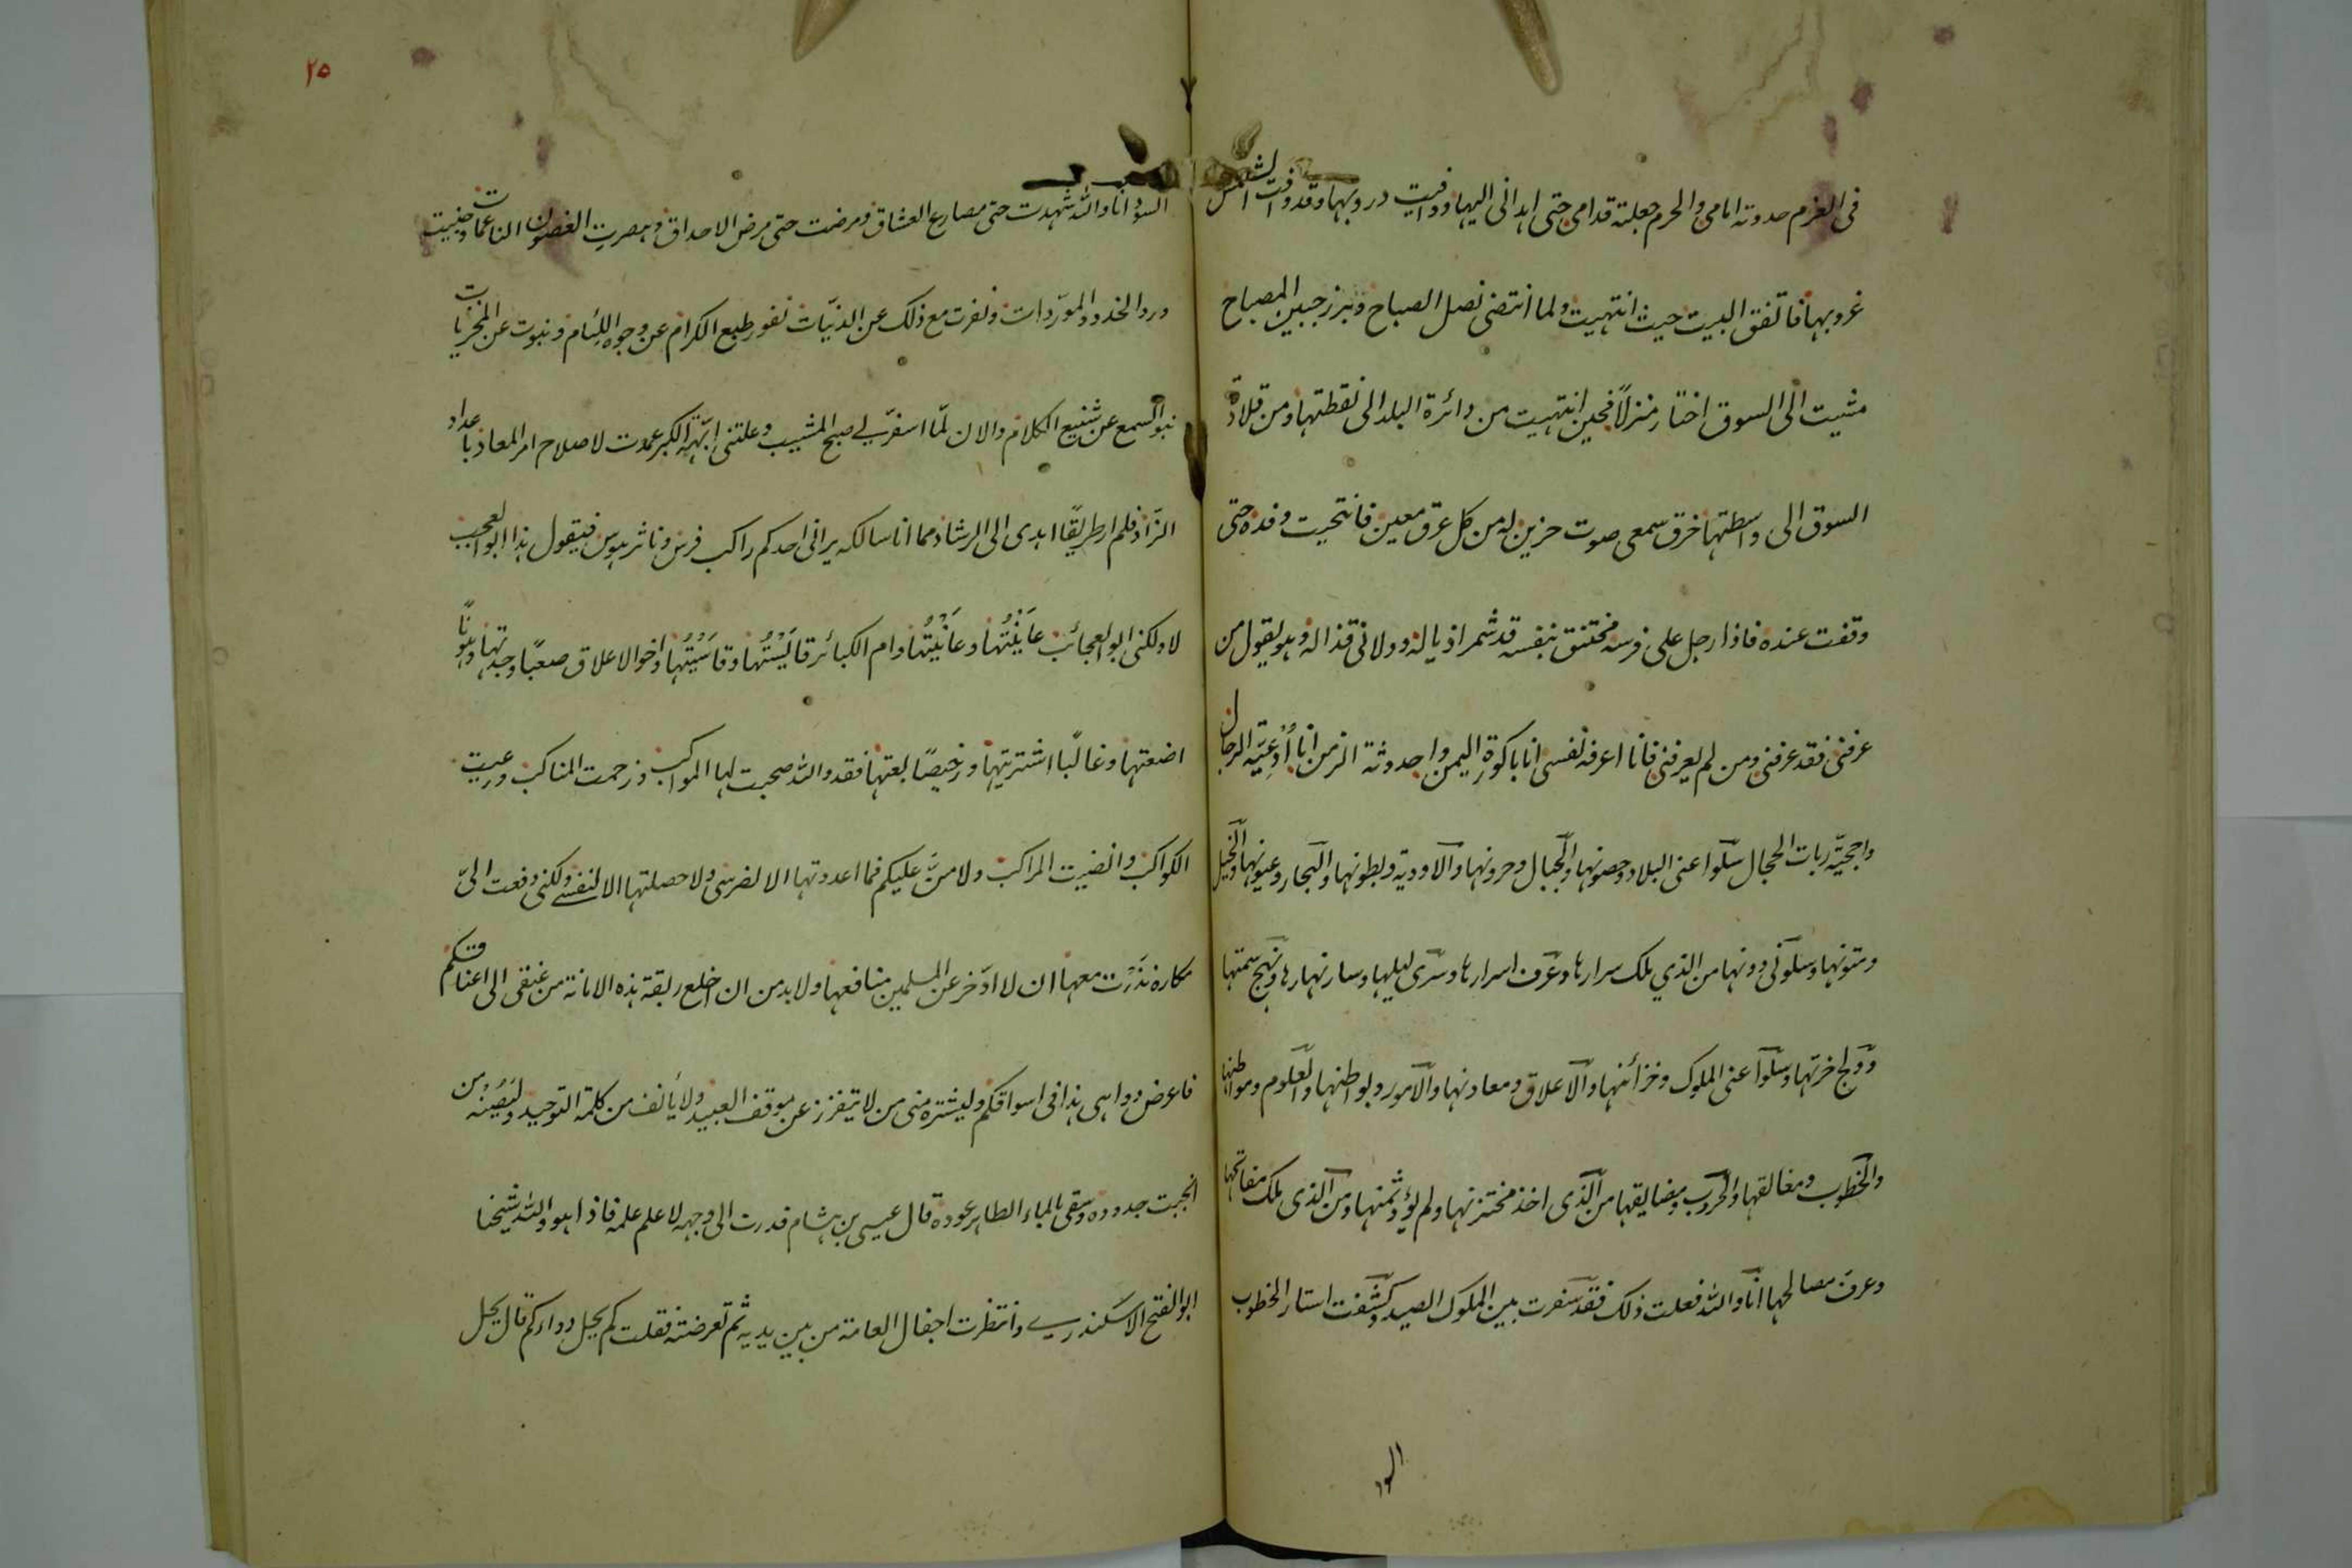 فى العزم حدوته امامى والحزم جعلته قدامى حتى هدانى اليها ووافيت دروبها وقد وافت الشمس
غروبها فاتفق المبيت حيث انتهيت ولما انتضى نصل الصباح وبرز جبين المصباح
مشيت الى السوق اختار منزلًا فحين انتهيت من دائرة البلد الى نقطتها ومن قلادة
السوق الى واسطتها خرق سمعى صوت حزين له من كل عرق معين فانتحيت وفده حتى
وقفت عنده فاذا رجل على فرسه مختنق بنفسه قد شمر اذياله وولانى قذاله وهو يقول من
عرفنى فقد عرفنى ومن لم يعرفنى فانا اعرفه نفسى انا باكورة اليمن واحدوثة الزمن انا اُدْعِيَّة الرجال
واحجيّة ربات الحجال سلوا عنى البلاد وحصونها والجبال وحزونها والاودية وبطونها والبحار وعيونها والخيل
ومتونها وسلونى دونها من الذي ملك سرارها وعرف اسرارها وسرى ليلها وسار نهارها ونهج سمتها
وولج اخرتها وسلوا عنى الملوك وخزائنها والاعلاق ومعادنها والامور وبواطنها والعلوم ومواطنها
والخطوب ومغالقها والحروب ومضايقها من الذى اخذ مختزنها ولم يؤد ثمنها ومن الذى ملك مفاتحها
وعرف مصالحها انا والله فعلت ذلك فقد سفرت بين الملوك الصيد وكشفت استار الخطوب
السود
٢٥
السود انا والله شهدت حتى مصارع العشاق ومرضت حتى مرض الاحداق وهصرت الغصون الناعمات وجنيت
ورد الخدود الموردات ونفرت مع ذلك عن الدنيّات نفور طبع الكرام عن وجوه اللئام ونبوت عن المخزيات
نبو السمع عن شنيع الكلام والان لمّا اسفر لى صبح المشيب وعلتنى ابّهة الكبر عمدت لاصلاح امر المعاد باعداد
الزّاد فلم ار طريقًا اهدى الى الرشاد مما انا سالكه يرانى احدكم راكب فرس وناثر هوس فيقول هذا ابو العجب
لا ولكنى ابو العجائب عايَنْتُها وعانَيْتُها وام الكبائر قايَسْتُها وقاسَيْتُها واخو الاعلاق صعبًا وجدتها وهونًا
اضعتها وغاليًا اشتريتها ورخيصًا بعتها فقد والله صحبت لها المواكب وزحمت المناكب ورعيت
الكواكب وانضيت المراكب ولا منَّ عليكم فما اعددتها الا لضرسى ولا حصلتها الا لنفسى ولكنى دفعت الىّ
مكاره نَذَرْت معها ان لا ادّخر عن المسلمين منافعها ولا بد من ان اخلع ربقة هذه الامانة من عنقى الى اعناقكم
فاعرض دواىى هذا فى اسواقكم وليشتره منى من لا يتقزز عن موقف العبيد ولا يأنف من كلمة التوحيد وليَصُنْه من
انجبت جدوده وسقى بالماء الطاهر عوده قال عيسى بن هشام فدرت الى وجهه لاعلم علمه فاذا هو والله شيخنا
ابو الفتح الاسكندرى وانتظرت اجفال العامة من بين يديه ثم تعرضته فقلت كم يحل دواءكم قال يحل